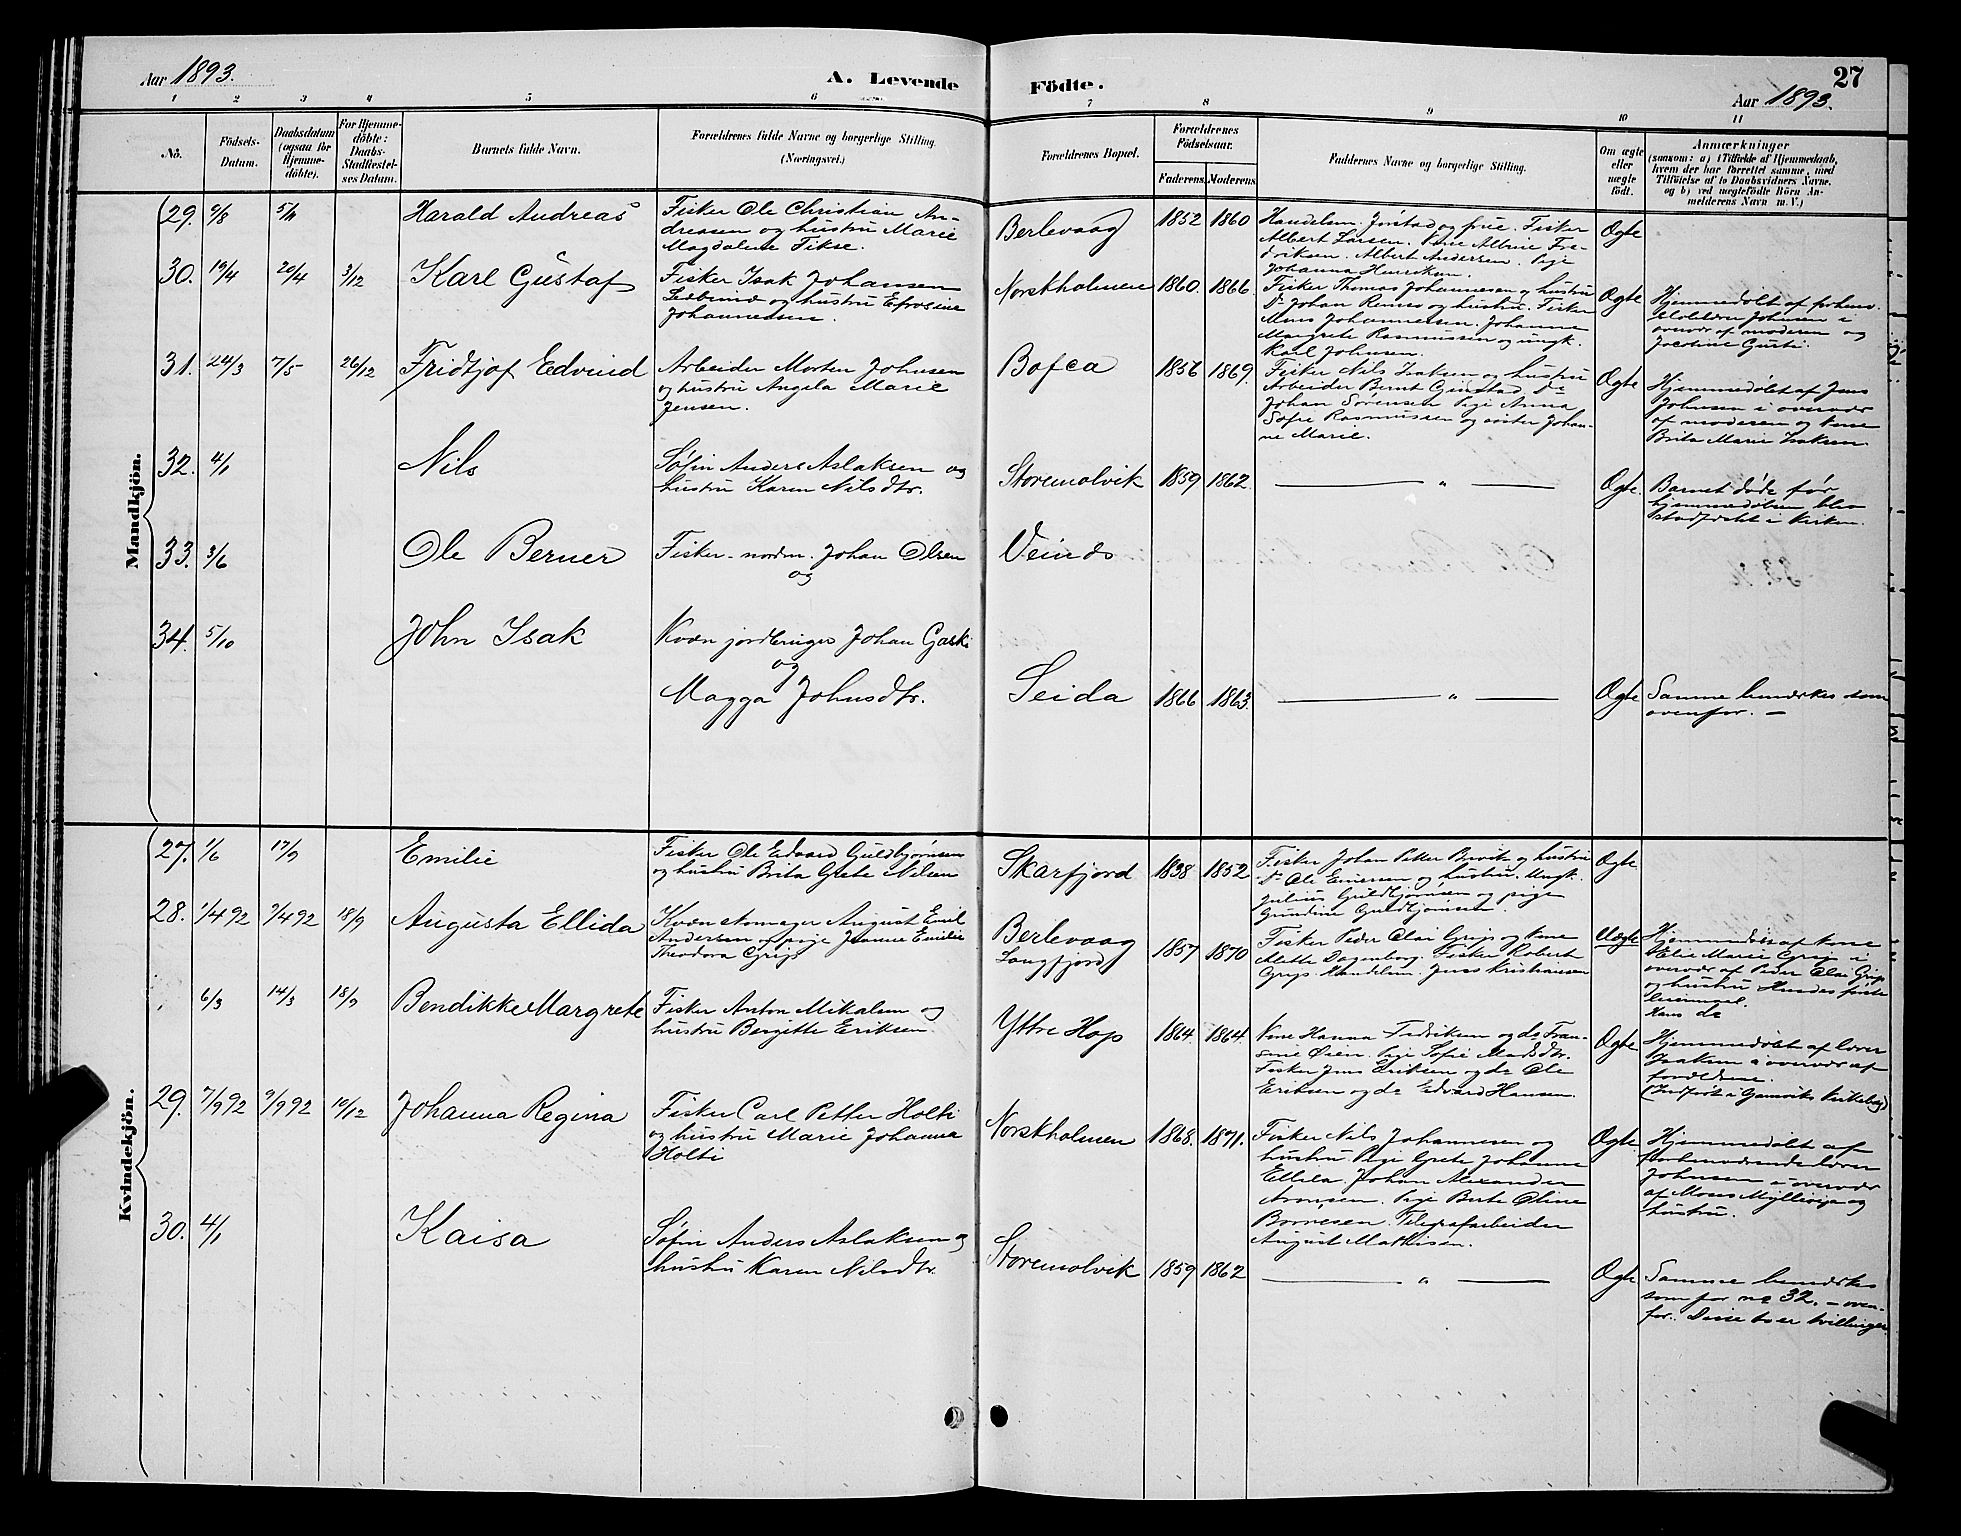 Aar 1893. A. Levende Födte. Aar 1893. 27
1 2 3 4 5 6 7 8 9 10 11
No. Födsels-Datum. Daabsdatum (ogsaa for Hjemmedöbte). For Hjemmedöbte: Daabs-Stadfæstelses Datum. Barnets fulde Navn. Forældrenes fulde Navne og borgerlige Stilling. (Næringsvei.) Forældrenes Bopæl. Forældrenes Födselsaar. Faderens. Moderens. Faddernes Navne og borgerlige Stilling. Om ægte eller uægte födt. Anmærkninger (saasom: a) i Tilfælde af Hjemmedaab, hvem der har forrettet samme, med Tilföielse af to Daabsvidners Navne, og b) ved uægtefödte Börn Anmelderens Navn m. V.)
Mandkjön.
29. 5/11 Harald Andreas
Fisker Ole Christian An-
dreasen og hustru Marie
Magdalene Fikse.
Berlevaag 1852 1860
Handelsm. Jørstad og frue. Fisker
Albert Larsen. Kone Albine Fre-
driksen. Albert Andersen. Pige
Johanna Henriksen.
Ægte
30. 19/4 20/4 3/12 Karl Gustaf
Fisker Isak Johansen
og hustru Efrosine
Johannesen.
Norskholmen 1860. 1866.
Fisker Thomas Johannesen og hustru
Do Johan og hustru. Fisker
Mons Johannesen. Johanne
Margrete Rasmussen og ungk.
Karl Johnsen.
Ægte
Hjemmedøbt af
Johnsen i
overvær af moderen og
Jacobine
31. 24/3 7/5 26/12 Fridtjof Edvind
Arbeider Morten Johnsen
og hustru Angela Marie
Jensen.
Bofca 1856 1869.
Fisker Nils Isaksen og hustru
Arbeider Bernt do
Johan Sørensen Pige Anna
Sofie Rasmussen og søster Johan-
ne Marie.
Ægte
Hjemmedøbt af Jens
Johnsen i overvær
af moderen og kone
Brita Marie Isaksen.
32. 4/1 Nils
Søfin Anders Aslaksen og
hustru Karen Nilsdtr.
Storemolvik 1859 1862. — " —
Ægte.
Barnet døde før
hjemmedøbsen blev
stadfæstet i kirken.
33. 3/6 Ole Berner
Fisker - nordm. Johan Olsen
og
Veines
34. 5/10 John Isak
Kvæn jordbruger Johan
og
Magga Johnsdtr.
Seida 1866 1863. — " —
Ægte
Samme bemærkes som
ovenfor. —
Kvindekjön.
27. 1/6 17/9 Emilie
Fisker Ole Edvard Guldbjørnsen
og hustru Brita Grete Nilsen
Skarfjord 1838 1852
Fisker Johan Petter og hustru
Do Ole og hustru. Ungk.
Julius Guldbjørnsen og pige
Gundine Guldbjørnsen.
Ægte
28. 1/4 92 9/4 92 18/9 Augusta Ellida
Kvæn skomager August Emil
Andersen og pige Jeanne Emilie
Theodora Grip
Berlevaag
Langfjord 1857 1870
Fisker Peder Olai Grip og kone
Mette Fisker Robert
Grip. Handelsm. Jens Kristiansen
Uægte
Hjemmedøbt af kone
Elie Marie Grip i
overvær af Peder Olai Grip
og hustru Hendes første
leiermaal.
Hans do
6/3 14/3 18/9 Bendikke Margrete
Fisker Anton Mikalsen og
hustru Bergitte Eriksen.
Yttre Hop 1864. 1864.
Kone Hanna Fredriksen og do Fran-
sine Pige Sofie Madsdtr.
Fisker Jens Eriksen og do Ole
Eriksen og do Edvard Hansen.
Ægte
Hjemmedøbt af lærer
Isaksen i overvær af
forældrene.
(Indført i Gamviks kirkebog)
29. 7/9 92 9/9 92 10/12 Johanna Regina
Fisker Carl Petter Holti
og hustru Marie Johanna
Holti
Norskholmen 1868. 1871.
Fisker Nils Johannesen og
hustru. Pige Grete Johanne
Johan Alexander
Aronsen. Pige Berte Oline
Telegrafarbeider
August Mathisen.
Ægte
Hjemmedøbt af
forhenværende lærer
Johnsen i overvær
af Moses og
hustru.
30. 4/1 Kaisa
Søfin Anders Aslaksen og
hustru Karen Nilsdtr.
Storemolvik 1859 1862 — " —
Ægte
Samme bemærkes
som for no 32. - oven-
for. Disse to er tvillinger